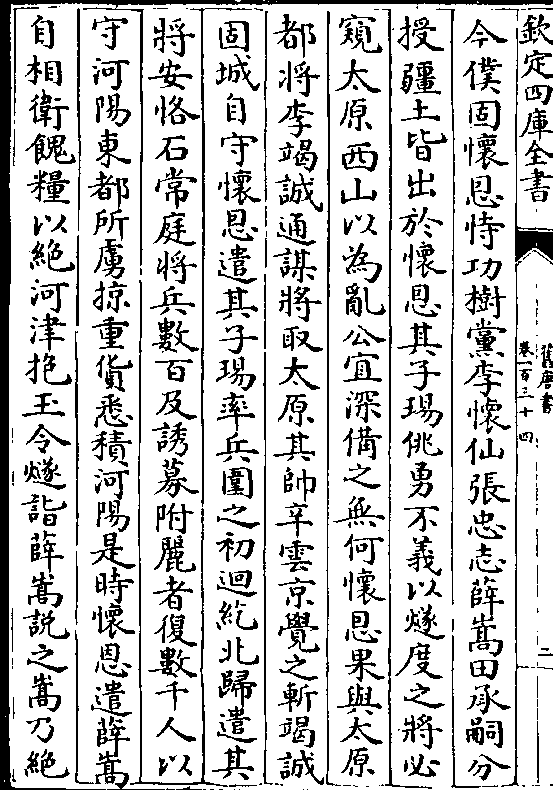 欽定四庫全書
舊唐書
卷一百三十四
二
今僕固懷恩恃功樹黨李懷仙張忠志薛嵩田承嗣分
授疆土皆出於懷恩其子瑒佻勇不義以燧度之將必
窺太原西山以為亂公宜深備之無何懷恩果與太原
都將李竭誠通謀將取太原其帥辛雲京覺之斬竭誠
固城自守懷恩遣其子瑒率兵圍之初迴紇北歸遣其
將安恪石常庭將兵數百及誘募附麗者復數千人以
守河陽東都所虜掠重貨悉積河陽是時懷恩遣薛嵩
自相衛餽糧以絶河津抱玉令燧詣薛嵩説之嵩乃絶